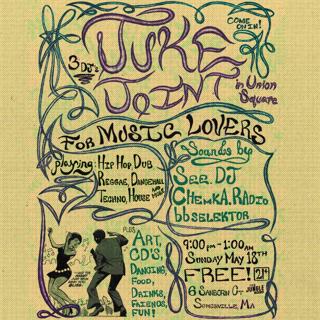 COME ON IN!
3 DJ's
JUKE
JOINT
in Union
Square
FOR MUSIC LOVERS
playing: HIP HOP, DUB
REGGAE, DANCEHALL
TECHNO, HOUSE AND MORE!
Sounds by
SEE.DJ
CHEMKA.RADIO
bbSELEKTOR
PLUS
ART,
CD'S,
DANCING,
FOOD,
DRINKS,
FRIENDS,
FUN!
9:00 PM - 1:00 AM
SUNDAY MAY 18TH
FREE! 21+
6 SANBORN CT
SOMERVILLE, MA